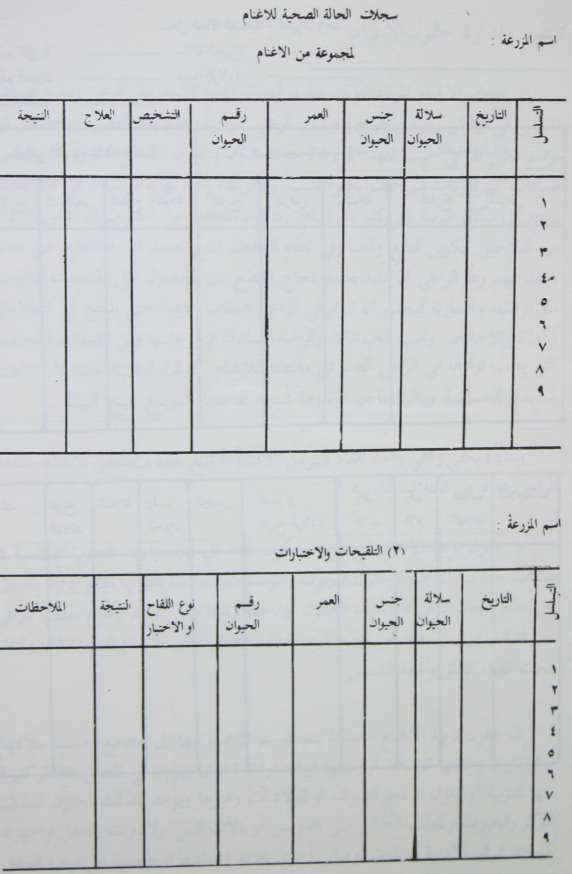 سجلات الحالة الصحية للاغنام
اسم المزرعة :
لمجموعة من الاغنام
التسلسل التاريخ سلالة الحيوان جنس الحيوان العمر رقم الحيوان التشخيص العلاج النتيجة
١
٢
٣
٤
٥
٦
٧
٨
٩
اسم المزرعة :
(٢) التلقيحات والاختبارات
التسلسل التاريخ سلالة الحيوان جنس الحيوان العمر رقم الحيوان نوع اللقاح او الاختبار النتيجة الملاحظات
١
٢
٣
٤
٥
٦
٧
٨
٩